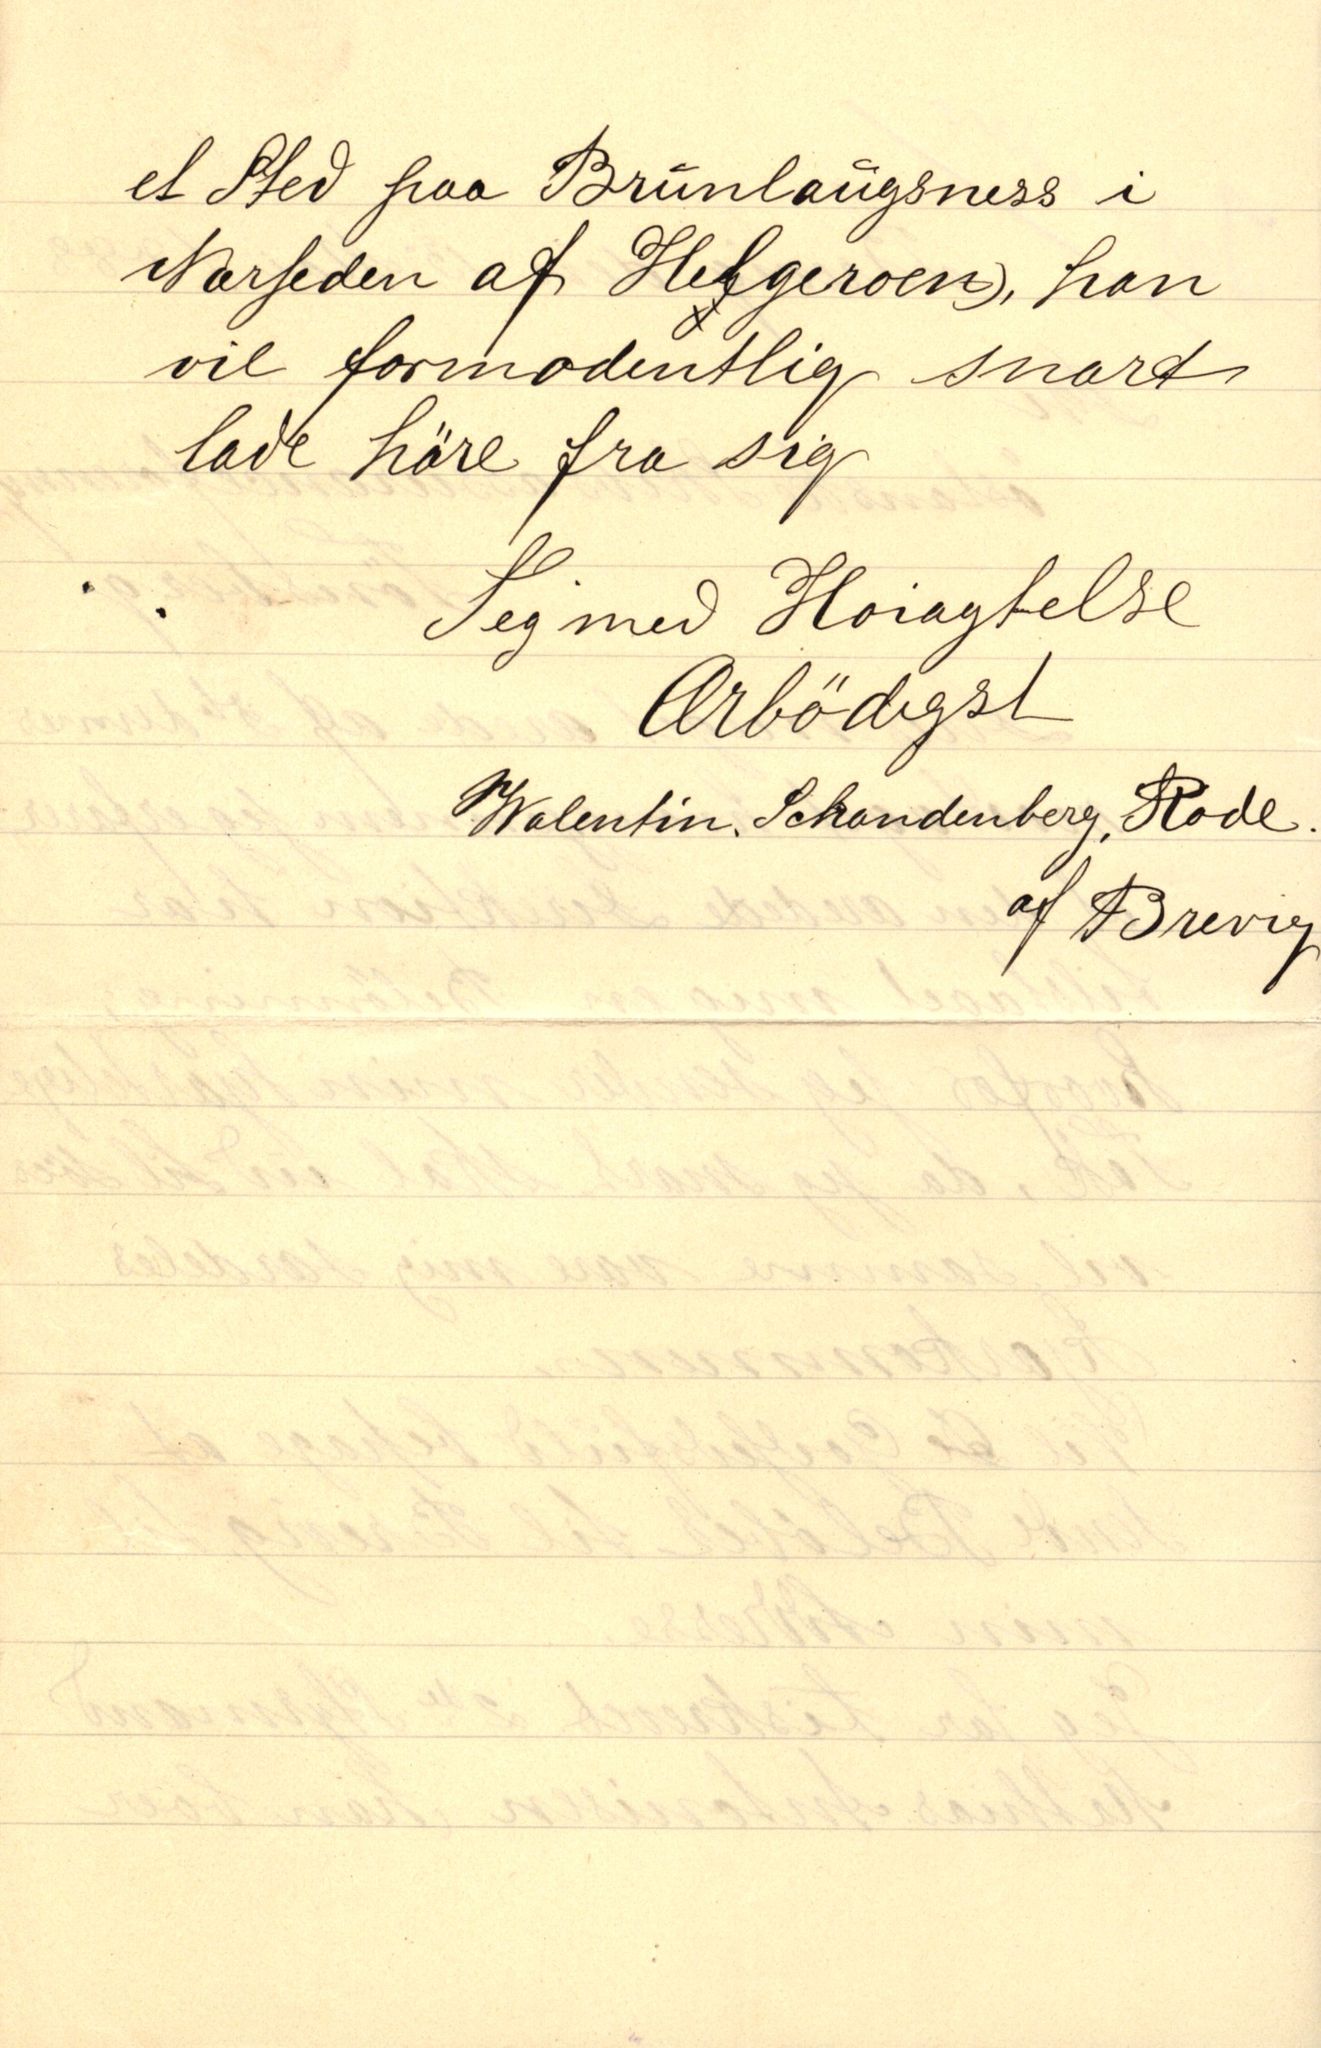 et Sted paa Brünlaügsness i
Narheden af Helgeroen), han
vil formodentlig snart
lade höre fra sig
Jeg med Hoiagtelse
Ærbödigst
Walentin. Schandenberg, Rode.
af Brevig